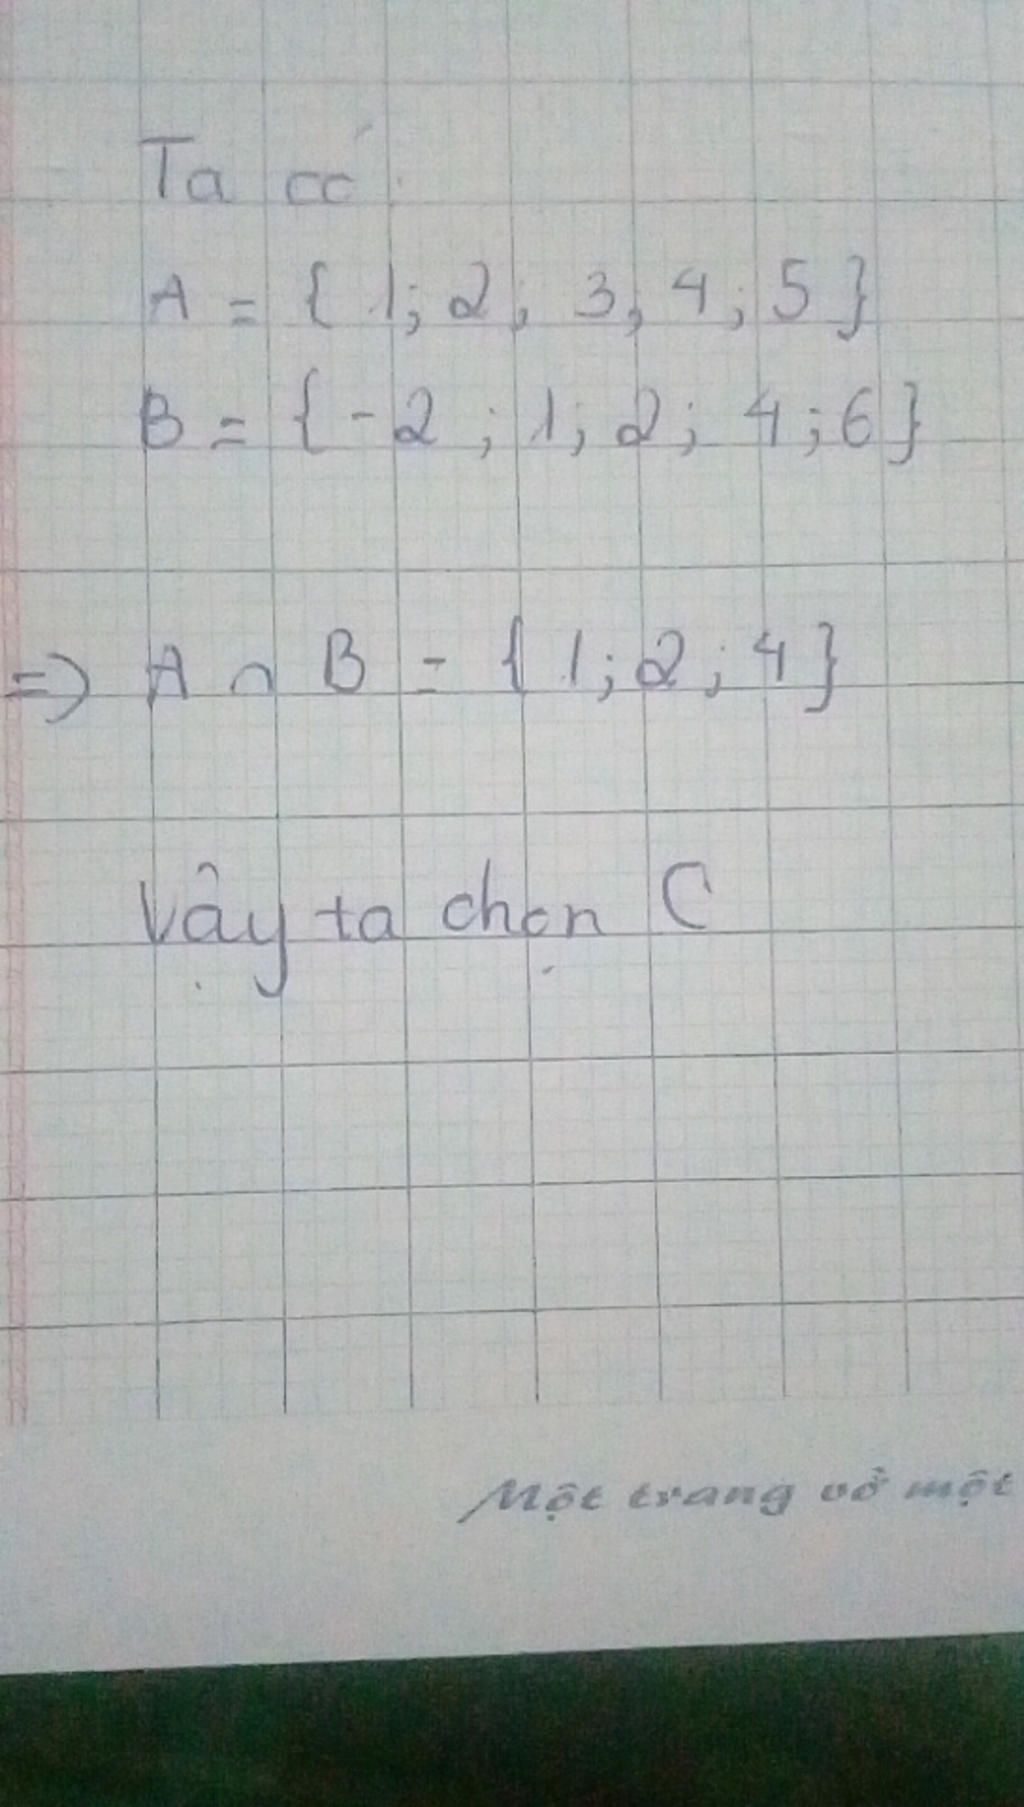 Ta có
A = { 1; 2; 3; 4; 5 }
B = { -2 ; 1; 2; 4 ; 6 }
=> A ∩ B = { 1 ; 2 ; 4 }
Vậy ta chọn C
Một trang vở một